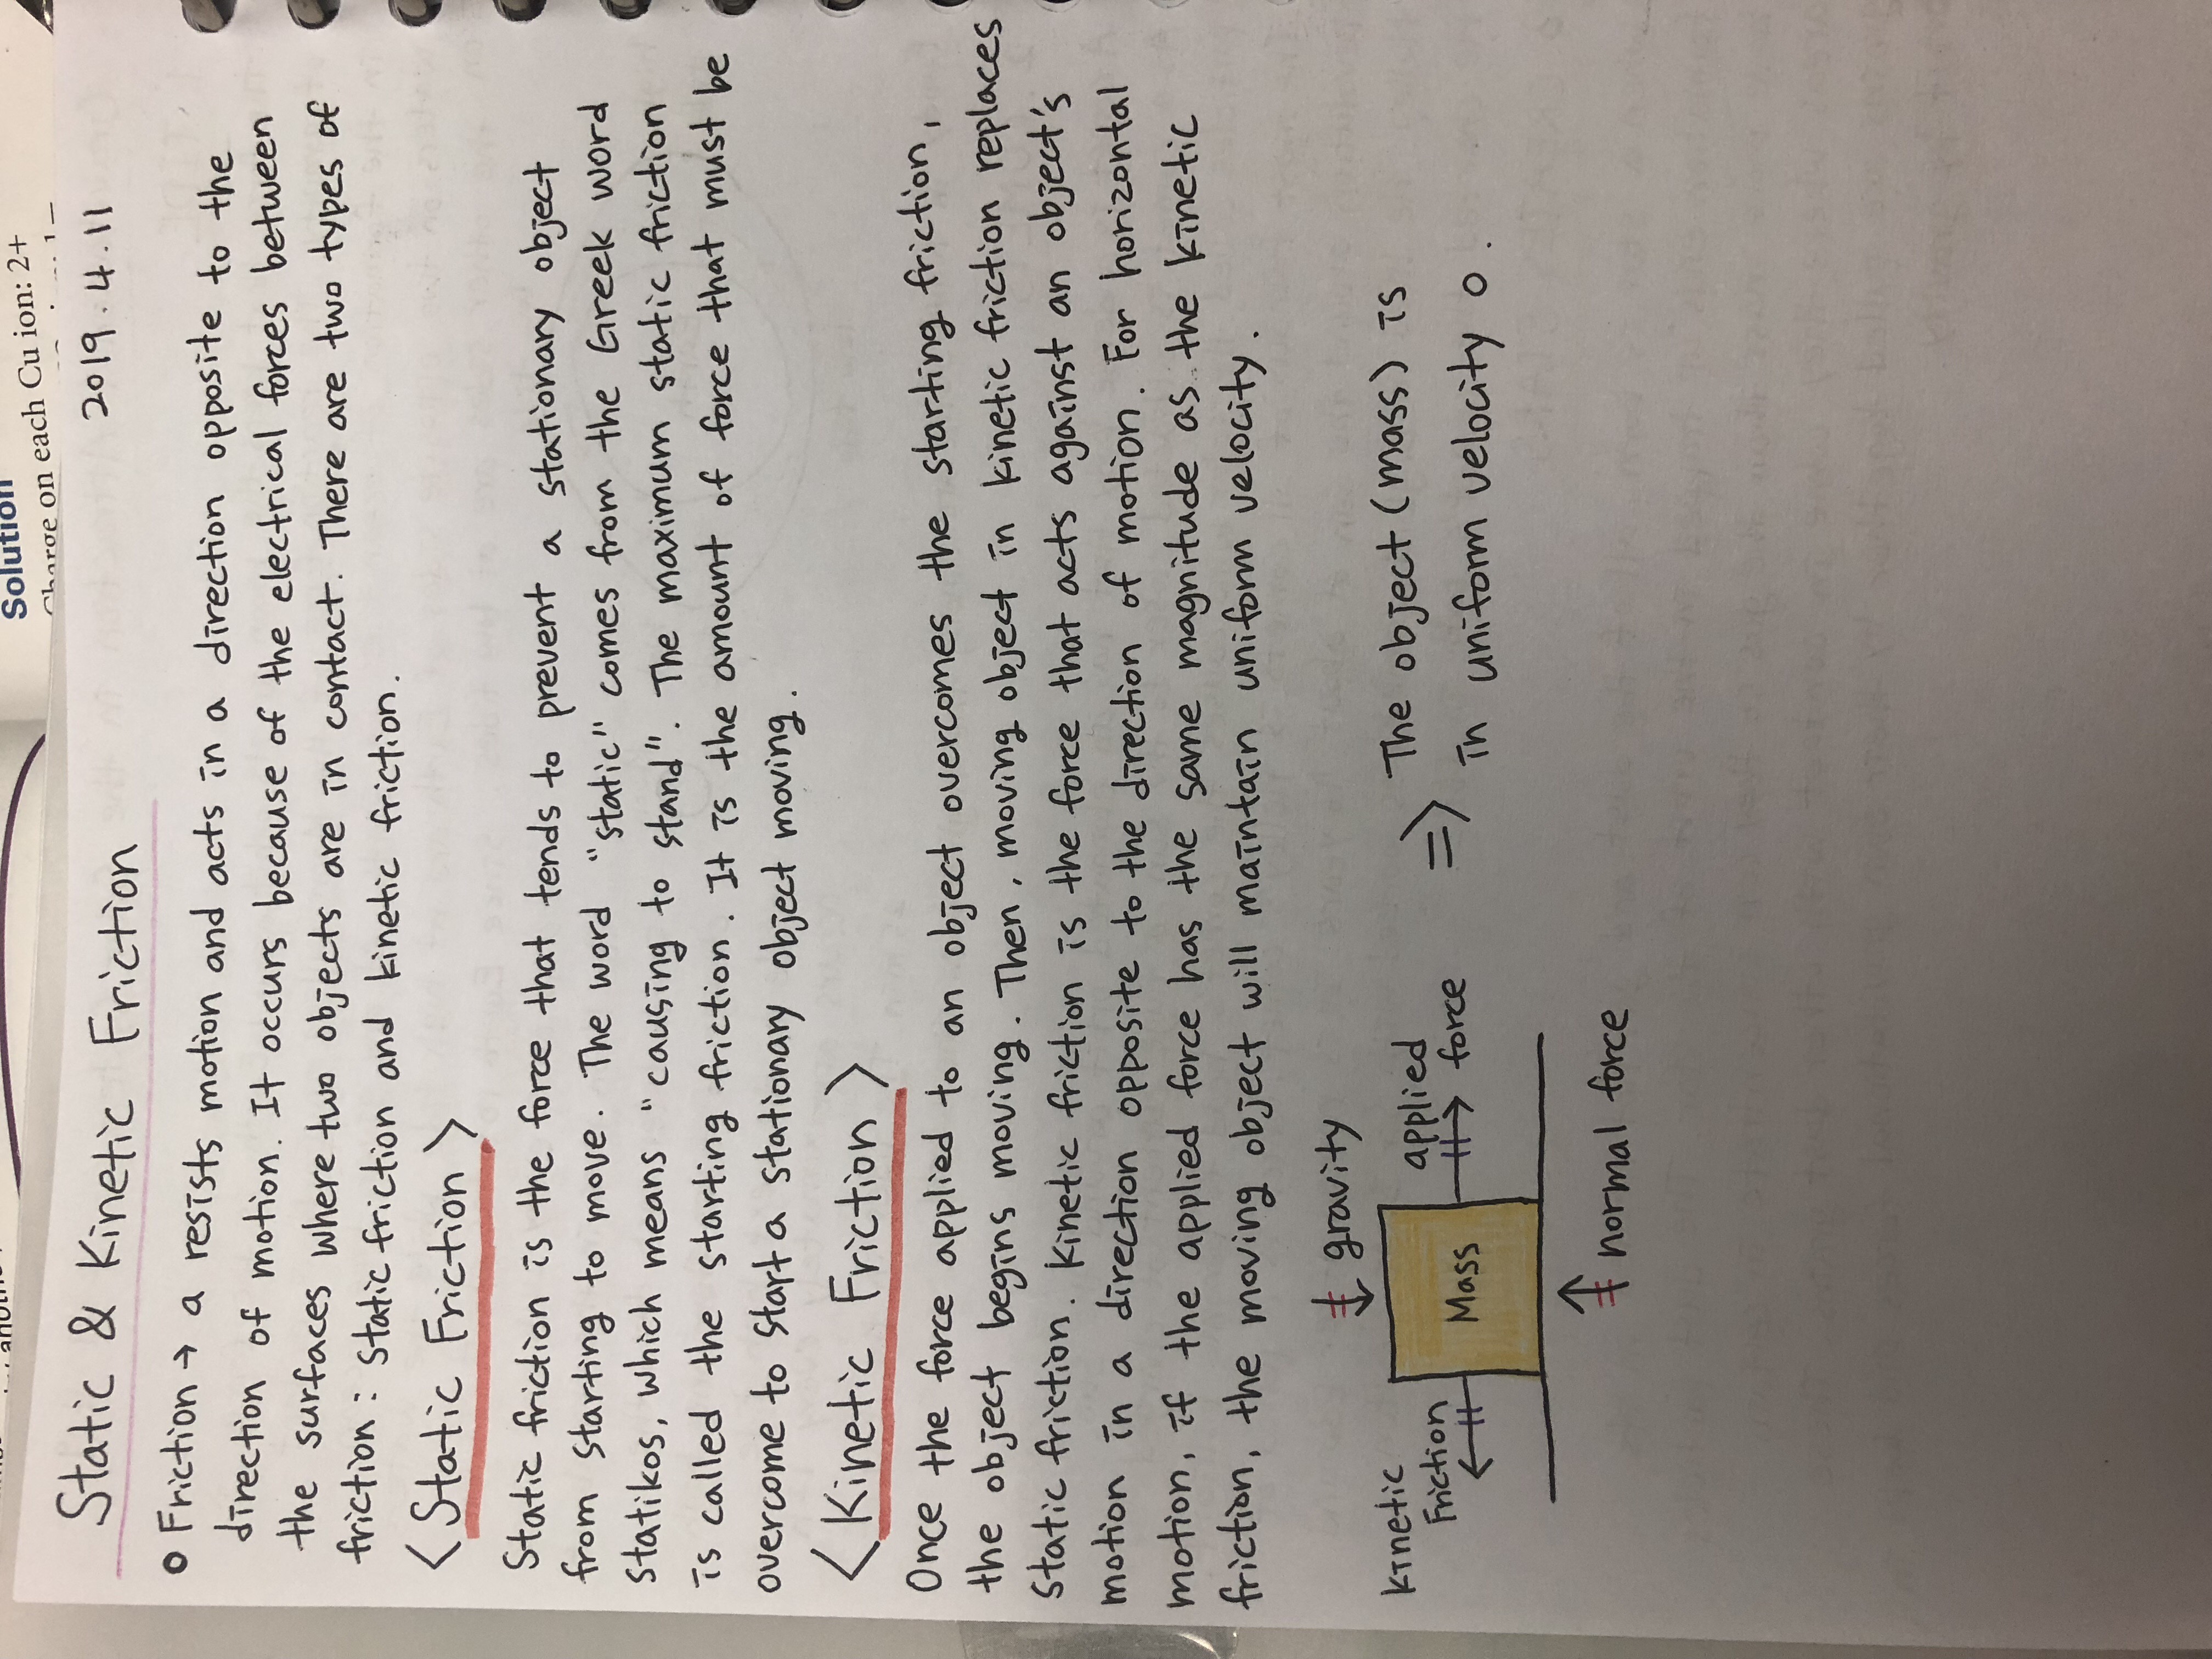 Solution
Charge on each Cu ion: 2+
Static & Kinetic Friction
2019. 4. 11
Friction → a resists motion and acts in a direction opposite to the
direction of motion. It occurs because of the electrical forces between
the surfaces where two objects are in contact. There are two types of
friction: static friction and kinetic friction.
<Static Friction>
Static friction is the force that tends to prevent a stationary object
from starting to move. The word "static" comes from the Greek word
statikos, which means "causing to stand". The maximum static friction
is called the starting friction. It is the amount of force that must be
overcome to start a stationary object moving.
<Kinetic Friction>
Once the force applied to an object overcomes the starting friction,
the object begins moving. Then, moving object in kinetic friction replaces
static friction. Kinetic friction is the force that acts against an object's
motion in a direction opposite to the direction of motion. For horizontal
motion, if the applied force has the same magnitude as the kinetic
friction, the moving object will maintain uniform velocity.
gravity
Kinetic
Friction
Mass
applied
force
normal force
=> The object (mass) is
in uniform velocity o.